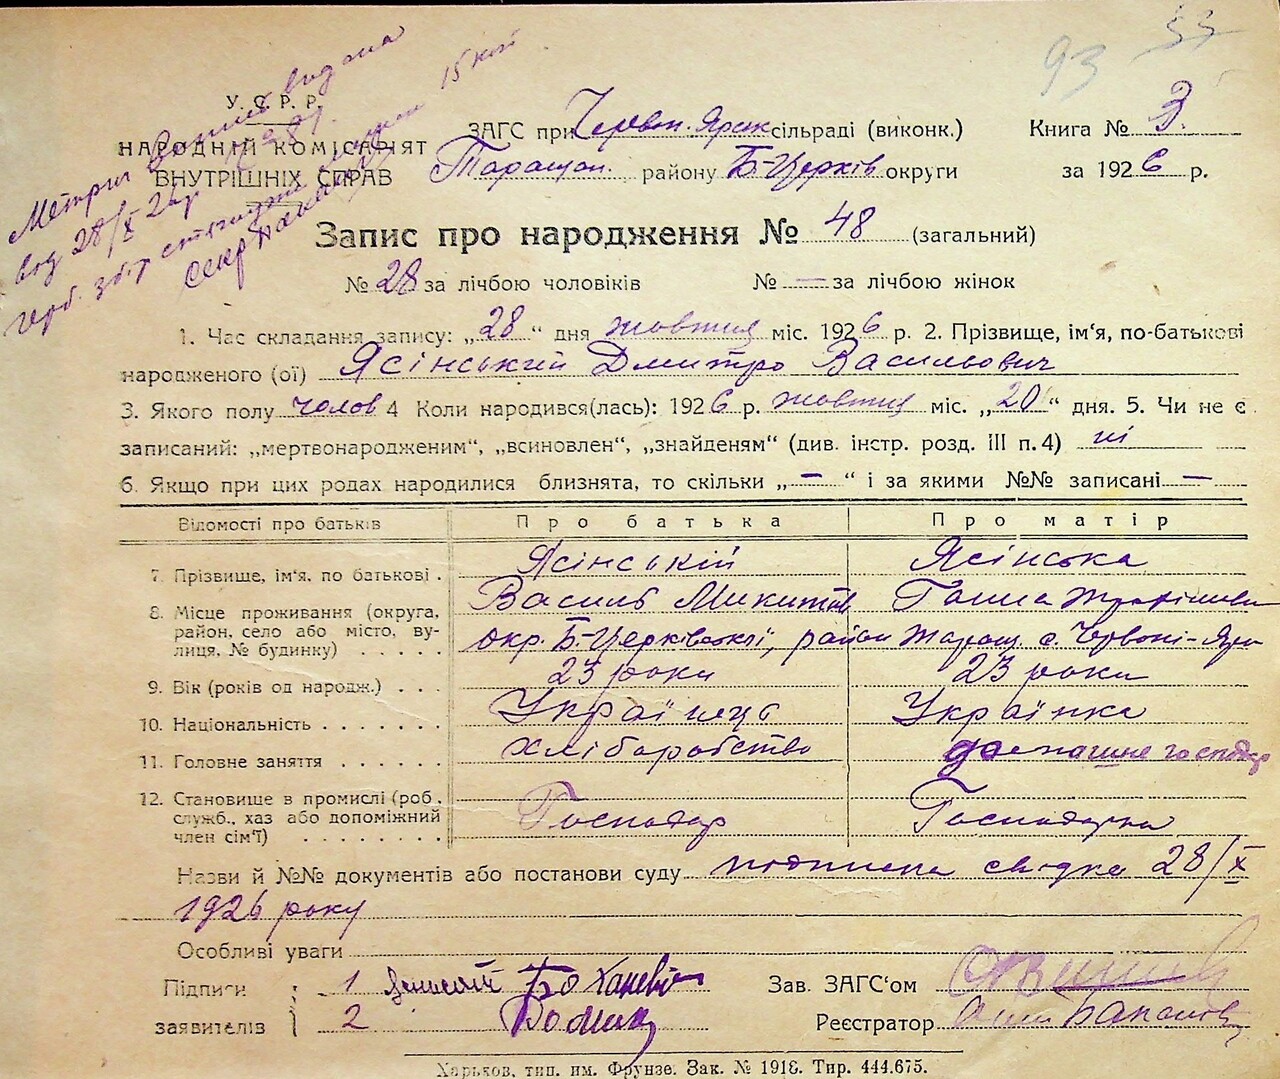 93 53
Метрич випись видана
від 28/X 26р № 281
герб. збір стягнуто 15 коп
Секр
У. С. Р. Р.
НАРОДНІЙ КОМІСАРІЯТ
ВНУТРІШНІХ СПРАВ
ЗАГС при Червон. Ярск сільраді (виконк.)
Книга № 3.
Таращан. району Б-Церків округи
за 1926 р.
Запис про народження № 48 (загальний)
№ 28 за лічбою чоловіків № — за лічбою жінок
1. Час складання запису: „28“ дня жовтня міс. 1926 р. 2. Прізвище, ім'я, по-батькові
народженого (ої) Ясінський Дмитро Васильович
3. Якого полу чолов 4 Коли народився(лась): 1926 р. жовтня міс. „20“ дня. 5. Чи не є
записаний: „мертвонародженим“, „всиновлен“, „знайденям“ (див. інстр. розд. III п. 4) ні
6. Якщо при цих родах народилися близнята, то скільки „—“ і за якими №№ записані —
Відомості про батьків Про батька Про матір
7. Прізвище, ім'я, по батькові . Ясінській Ясінська
Василь Микитов Ганна
8. Місце проживання (округа, район, село або місто, вулиця, № будинку) . . . . . окр. Б-Церківської, район Таращ. с. Червоні-Яри
9. Вік (років од народж.) . . . 23 роки 23 роки
10. Національність . . . . . . . Українець Українка
11. Головне заняття . . . . . . хліборобство домашнє господар
12. Становище в промислі (роб., служб., хаз або допоміжний член сім'ї) . . . . . . . Господар Господарка
Назви й №№ документів або постанови суду підписка свідка 28/X
1926 року
Особливі уваги
Підписи заявителів
1
2
Зав. ЗАГС'ом
Реєстратор
Харьков, тип. им. Фрунзе. Зак. № 1918. Тир. 444.675.